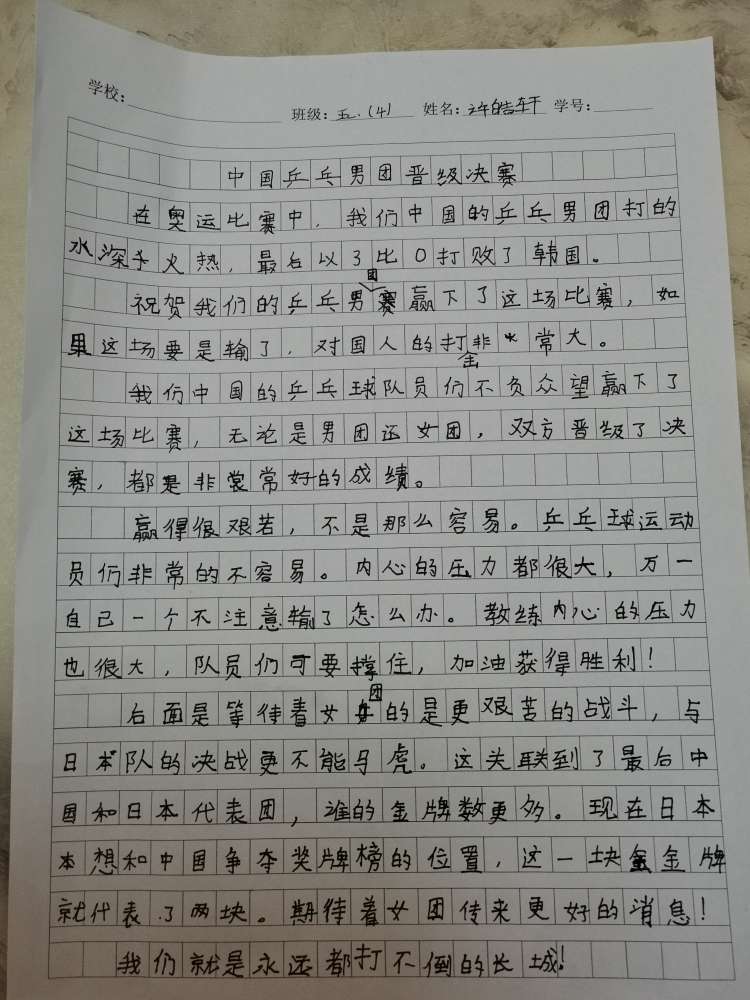 学校：
班级：五.(4) 姓名：许皓轩 学号：
中国乒乓男团晋级决赛
在奥运比赛中，我们中国的乒乓男团打的
水深于火热，最后以3比0打败了韩国。
祝贺我们的乒乓男团赛赢下了这场比赛，如
果这场要是输了，对国人的打击非常大。
我们中国的乒乓球队员们不负众望赢下了
这场比赛，无论是男团还女团，双方晋级了决
赛，都是非常常好的成绩。
赢得很艰苦，不是那么容易。乒乓球运动
员们非常的不容易。内心的压力都很大，万一
自己一个不注意输了怎么办。教练内心的压力
也很大，队员们可要撑住，加油获得胜利！
后面是等待着女团的是更艰苦的战斗，与
日本队的决战更不能马虎。这关联到了最后中
国和日本代表团，谁的金牌数更多。现在日本
本想和中国争夺奖牌榜的位置，这一块金金牌
就代表了两块。期待着女团传来更好的消息！
我们就是永远都打不倒的长城！